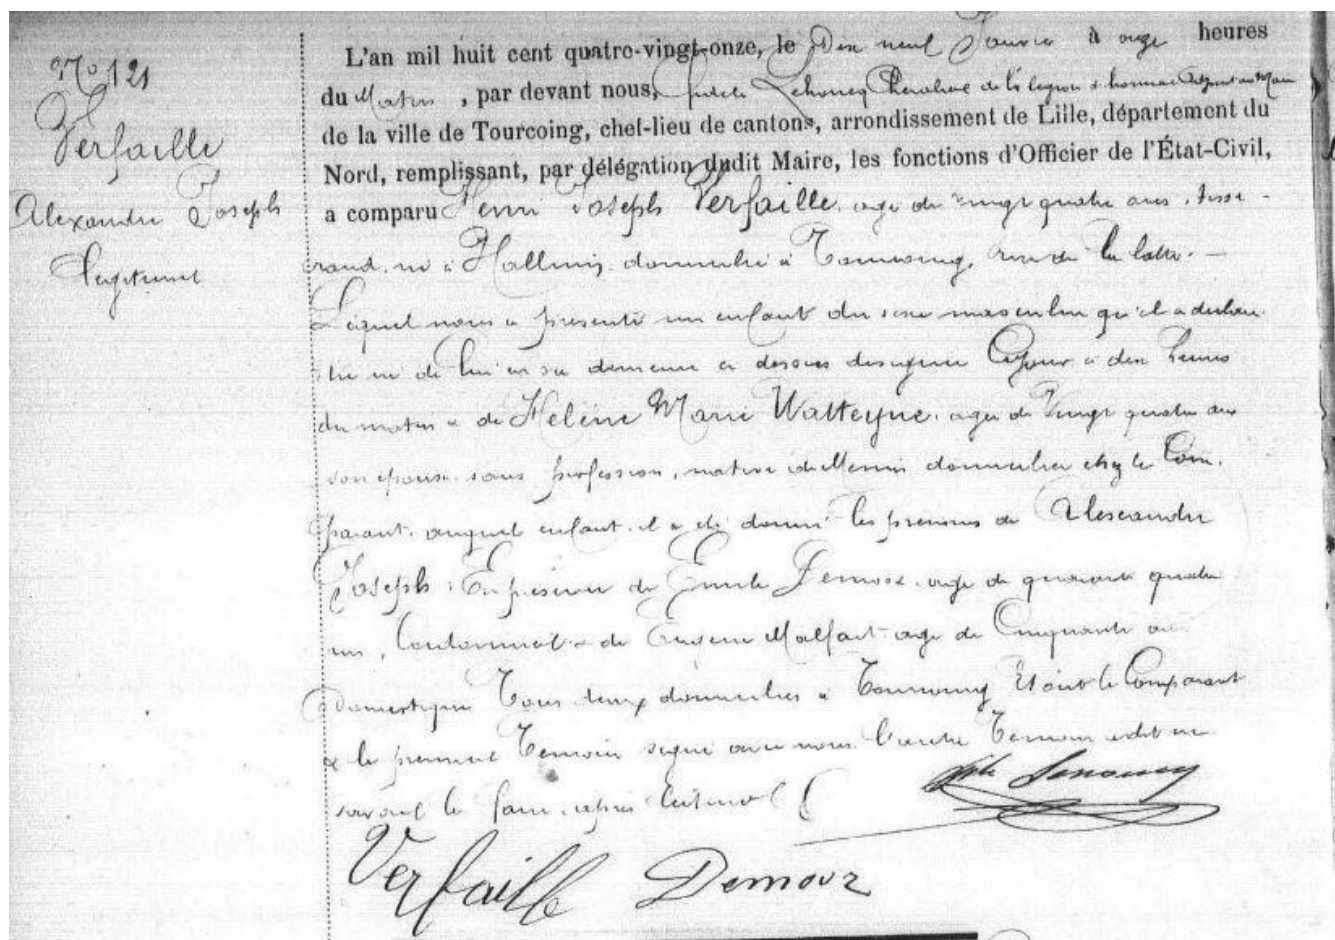 No 121
Verfaille
Alexandre Joseph
Légitime
L'an mil huit cent quatre-vingt-onze, le Dix neuf Janvier à onze heures
du Matin, par devant nous, Lehoucq Chevalier de la légion d'honneur Adjoint au Maire
de la ville de Tourcoing, chef-lieu de cantons, arrondissement de Lille, département du
Nord, remplissant, par délégation dudit Maire, les fonctions d'Officier de l'État-Civil,
a comparu Henri Joseph Verfaille, agé de vingt quatre ans, tisse-
rand, né à Halluin, domicilié à Tourcoing, rue de la latte. —
Lequel nous a présenté un enfant du sexe masculin qu'il a déclaré
être né de lui en sa demeure ci dessus désignée Cejour à dix heures
du matin & de Hélène Marie Watteyne, agée de Vingt quatre ans
son épouse, sans profession, native de Menin domiciliée chez le Com-
parant, auquel enfant il a été donné les prénoms de Alexandre
Joseph. En présence de Emile Demorz, agé de quarante quatre
ans, Cordonnier & de Eugène Malfait agé de Cinquante ans
Domestique Tous deux domiciliés à Tourcoing Et ont le Comparant
& le premier Témoin signé avec nous. l'autre Témoin a dit ne
savoir le faire, après lecture
Verfaille Demorz